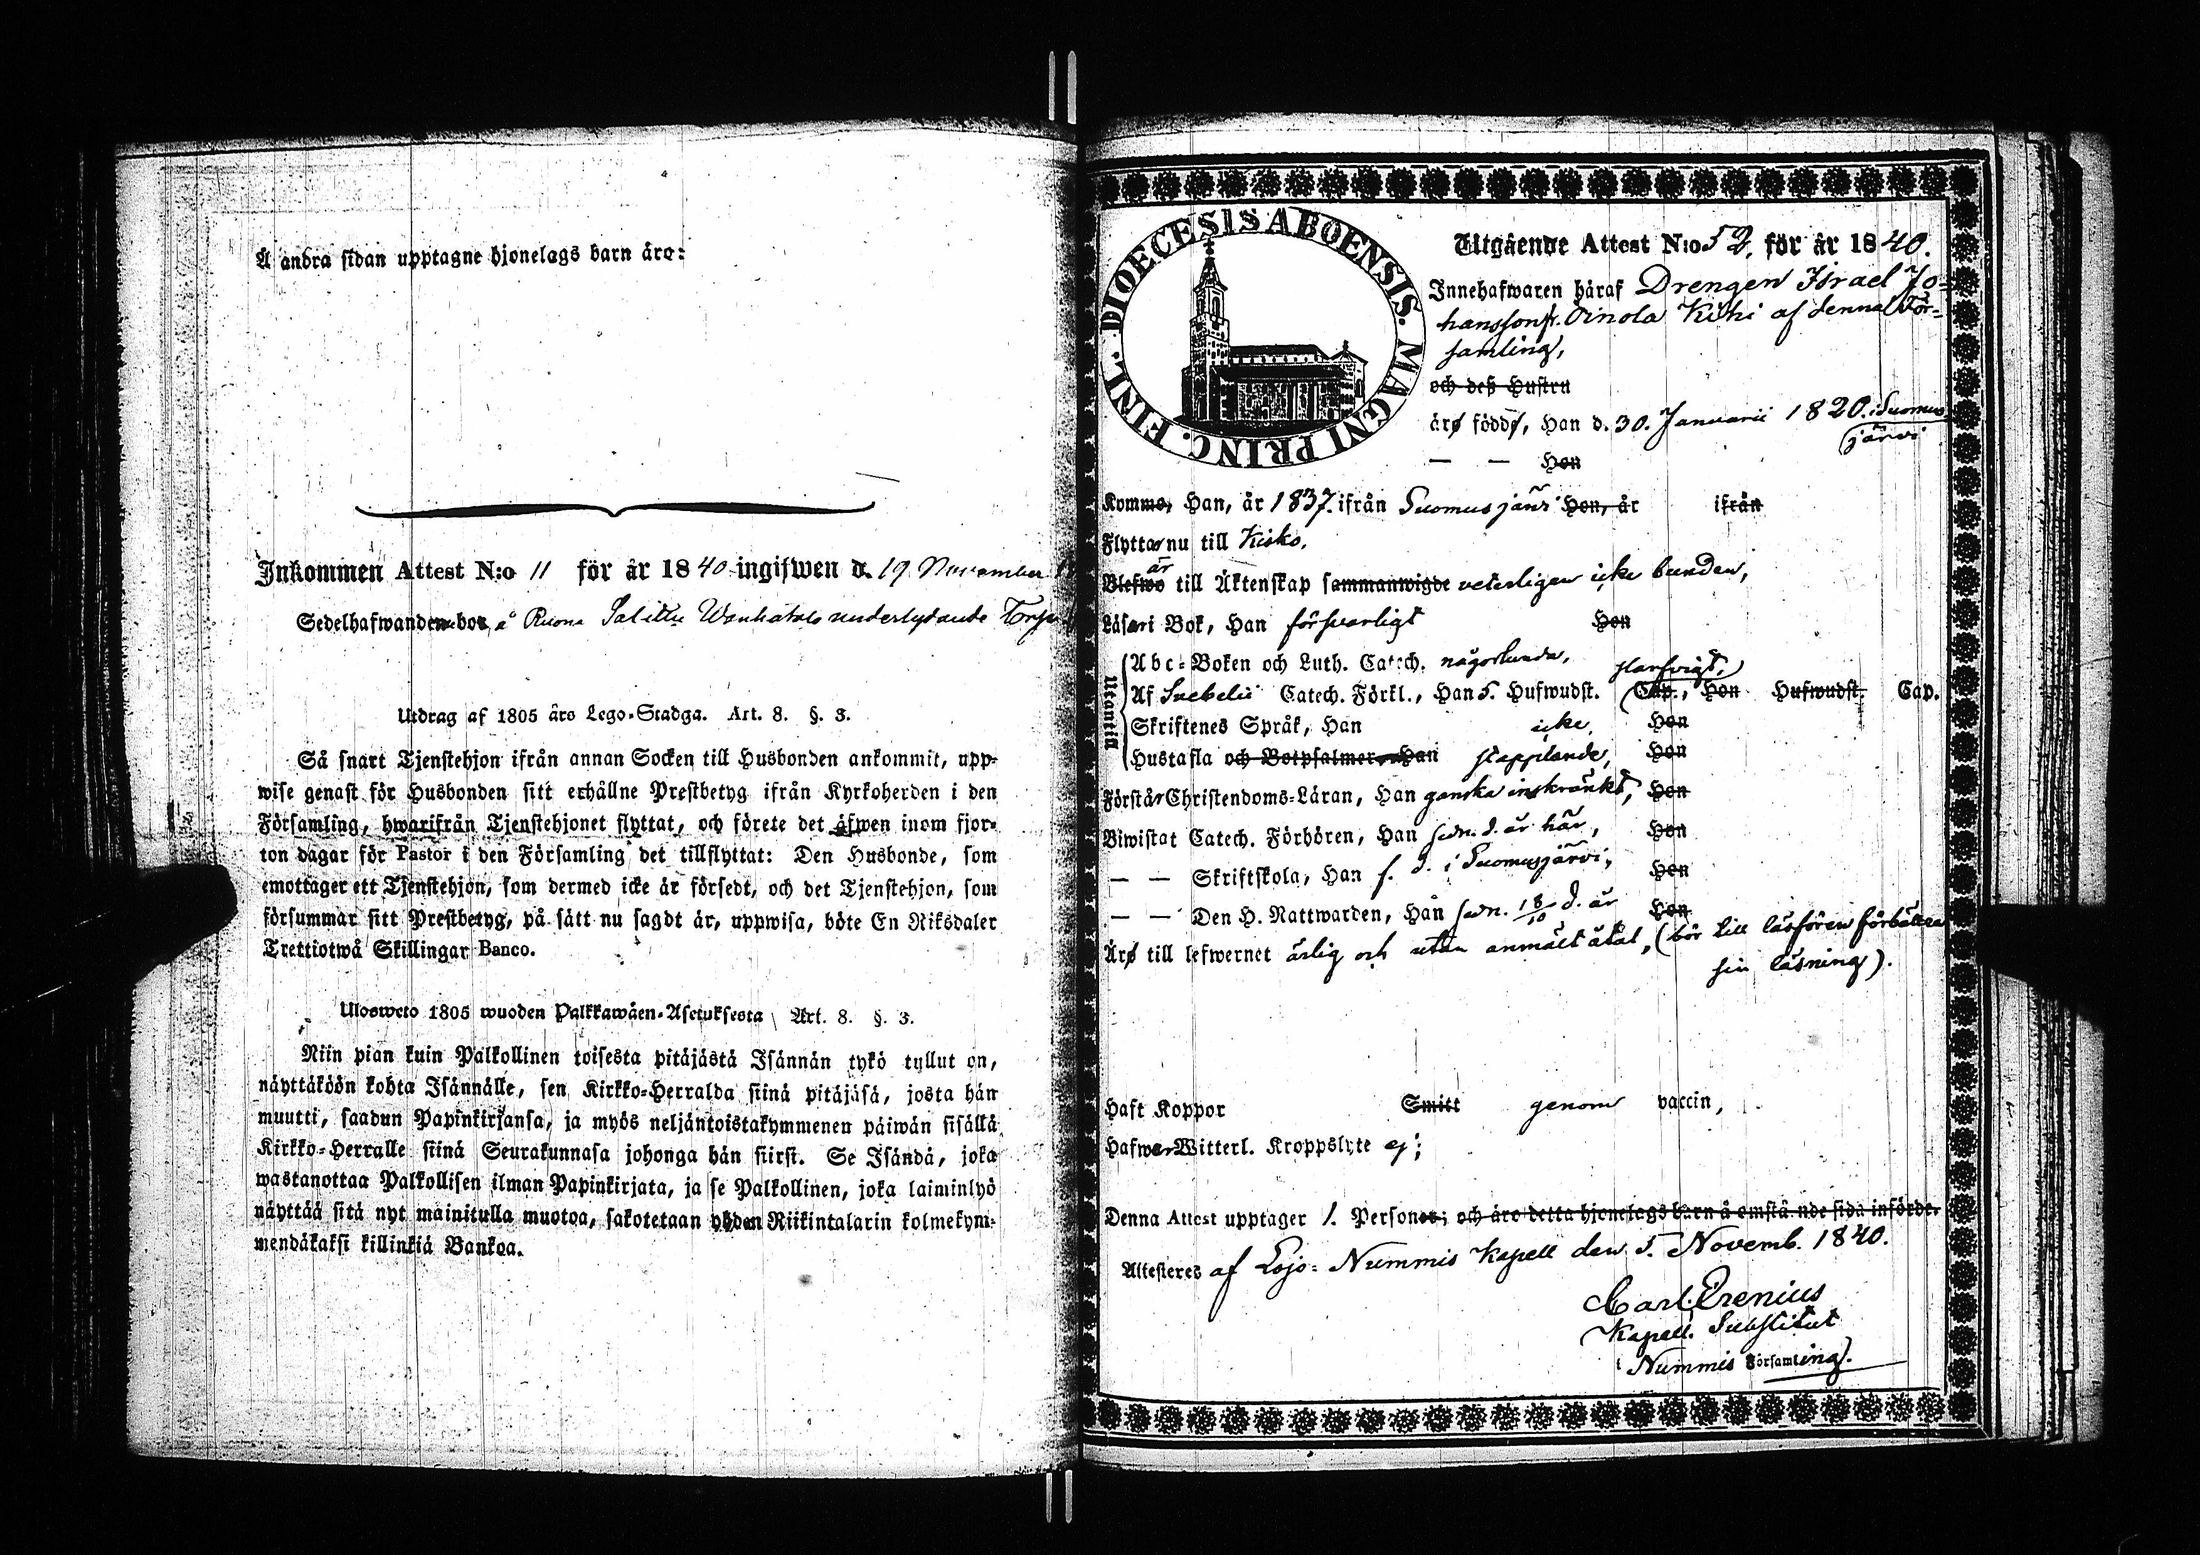 Å andra sidan upptagne hjonelags barn äro:
Inkommen Attest N:o 11 för år 1840 ingifwen d. 19 November
Sedelhafwanden bor å Ruona Salittu Wanhatalo underlydande Torp
Utdrag af 1805 års Lego-Stadga. Art. 8. §. 3.
Så snart Tjenstehjon ifrån annan Socken till Husbonden ankommit, upp-
wise genast för Husbonden sitt erhållne Prestbetyg ifrån Kyrkoherden i den
Församling, hwarifrån Tjenstehjonet flyttat, och förete det äfwen inom fjor-
ton dagar för Pastor i den Församling det tillflyttat: Den Husbonde, som
emottager ett Tjenstehjon, som dermed icke är försedt, och det Tjenstehjon, som
försummar sitt Prestbetyg, på sätt nu sagdt är, uppwisa, böte En Riksdaler
Trettiotwå Skillingar Banco.
Ulosweto 1805 wuoden Palkkawäen-Asetuksesta Art. 8. §. 3.
Niin pian kuin Palkollinen toisesta pitäjästä Isännän tykö tyllut on,
näyttäköön kohta Isännälle, sen Kirkko-Herralda siinä pitäjäsä, josta hän
muutti, saadun Papinkirjansa, ja myös neljäntoistakymmenen päiwän sisällä
Kirkko-Herralle siinä Seurakunnasa johonga hän siirsi. Se Isändä, joka
wastanottaa Palkollisen ilman Papinkirjata, ja se Palkollinen, joka laiminlyö
näyttää sitä nyt mainitulla muotoa, sakotetaan yhden Riikintalarin kolmekym-
mendäkaksi killinkiä Bankoa.
DIOECESIS ABOENSIS. MAGNI PRINC. FINL.
Utgående Attest N:o 52. för år 1840.
Innehafwaren häraf Drengen Israel Jo-
hansson fr. Oinola Kihi af denna För-
samling,
och deß Hustru
äro födde, Han d. 30. Januarii 1820. i Suomus
järvi
— — Hon
Komme, Han, år 1837. ifrån Suomusjärvi Hon, år ifrån
Flyttar nu till Kisko.
är
Blefwo till Äktenskap sammanwigde veterligen icke bunden,
Läser i Bok, Han försvarligt Hon
Utantill
Abc-Boken och Luth. Catech. någorlunda, slarfvigt,
Af Svebelii Catech. Förkl., Han 5. Hufwudst. Cap., Hon Hufwudst. Cap.
Skriftenes Språk, Han icke, Hon
Hustafla och Botpsalmer Han stapplande, Hon
Förstår Christendoms-Läran, Han ganska inskränkt, Hon
Biwistat Catech. Förhören, Han sedn. d. år här, Hon
— — Skriftskola, Han f. d. i Suomusjärvi, Hon
— — Den H. Nattwarden, Han sedn. 18/10 d. år Hon
Äro till lefwernet ärlig och utan anmäldt åtal, (bör till läsfören förbättra
sin läsning).
Haft Koppor Smitt genom vaccin,
Hafwer Witterl. Kroppslyte ej;
Denna Attest upptager 1. Personer; och äro detta hjonelags barn å omstående sida införde.
Attesteres af Lojo- Nummis Kapell den 5. Novemb. 1840.
Carl Erenius
Kapell. Substitut
i Nummis Församling.